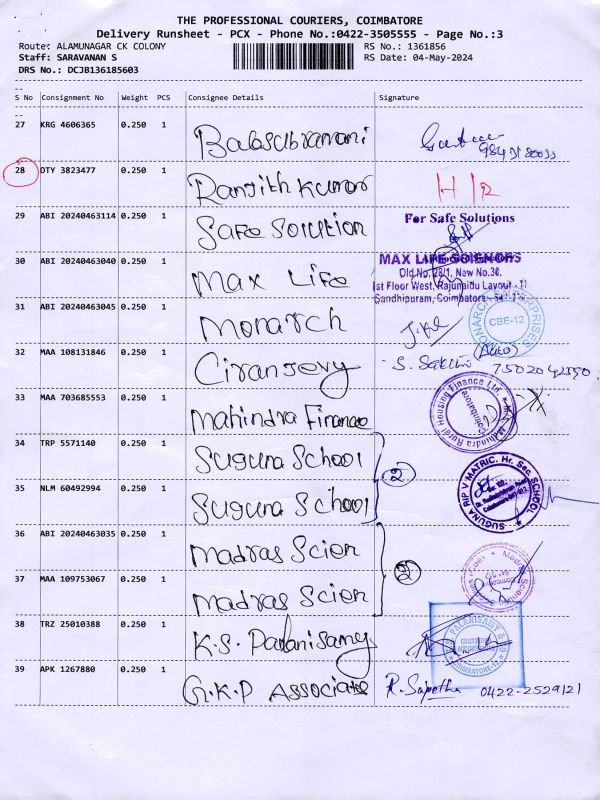 THE PROFESSIONAL COURIERS, COIMBATORE
Delivery Runsheet - PCX - Phone No.:0422-3505555 - Page No.:3
Route: ALAMUNAGAR CK COLONY
RS No.: 1361856
Staff: SARAVANAN S
RS Date: 04-May-2024
DRS No.: DCJB136185603
S No Consignment No Weight PCS Consignee Details Signature
27 KRG 4606365 0.250 1 Balasubramani
28 DTY 3823477 0.250 1 Ranjith Kumar
29 ABI 20240463114 0.250 1 Safe Solution For Safe Solutions
30 ABI 20240463040 0.250 1 Max Life MAX LIFE SCIENCES
Old No.28/1, New No.30,
1st Floor West, Rajunaidu Layout - 11
Gandhipuram, Coimbatore
31 ABI 20240463045 0.250 1 Monarch MONARCH ENTERPRISES CBE-12
32 MAA 108131846 0.250 1 Ciranjevy S. Sakthi (Auto)
33 MAA 703685553 0.250 1 Mahindra Finance Mahindra Rural Housing Finance Ltd. Coimbatore
34 TRP 5571140 0.250 1 Suguna School 2
35 NLM 60492994 0.250 1 Suguna School SUGUNA RIP V MATRIC. Hr. Sec. SCHOOL
36 ABI 20240463035 0.250 1 Madras Scien 2
37 MAA 109753067 0.250 1 Madras Scien
38 TRZ 25010388 0.250 1 K.S. Palanisamy
39 APK 1267880 0.250 1 G.K.P Associate 0422-2529121